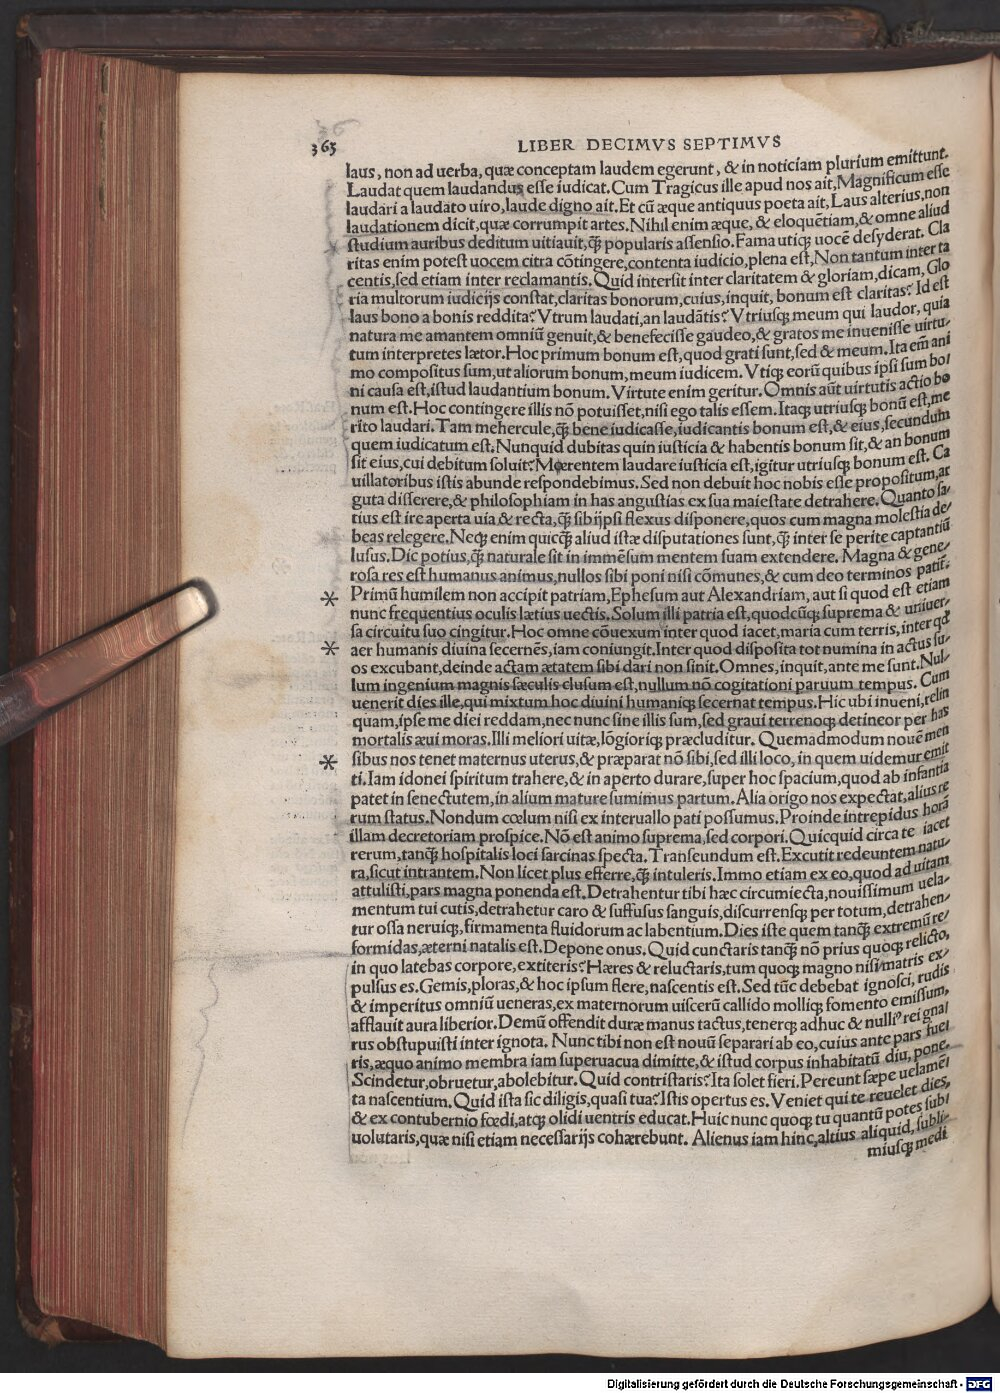 365 LIBER DECIMVS SEPTIMVS
laus, non ad uerba, quæ conceptam laudem egerunt, & in noticiam plurium emittunt.
Laudat quem laudandus esse iudicat. Cum Tragicus ille apud nos ait, Magnificum esse
laudari a laudato uiro, laude digno ait. Et cũ æque antiquus poeta ait, Laus alterius, non
laudationem dicit, quæ corrumpit artes. Nihil enim æque, & eloquẽtiam, & omne aliud
studium auribus deditum uitiauit, q̃ popularis assensio. Fama utiq; uocẽ desyderat. Cla
ritas enim potest uocem citra cõtingere, contenta iudicio, plena est, Non tantum inter ta
centis, sed etiam inter reclamantis. Quid intersit inter claritatem & gloriam, dicam, Glo
ria multorum iudicijs constat, claritas bonorum, cuius, inquit, bonum est claritas? Id est
laus bono a bonis reddita? Vtrum laudati, an laudãtis? Vtriusq; meum qui laudor, quia
natura me amantem omniũ genuit, & benefecisse gaudeo, & gratos me inuenisse uirtu-
tum interpretes lætor. Hoc primum bonum est, quod grati sunt, sed & meum. Ita em̃ ani
mo compositus sum, ut aliorum bonum, meum iudicem. Vtiq; eorũ quibus ipsi sum bo/
ni causa est, istud laudantium bonum. Virtute enim geritur. Omnis aũt uirtutis actio bo
num est. Hoc contingere illis nõ potuisset, nisi ego talis essem. Itaq; utriusq; bonũ est, me
rito laudari. Tam mehercule, q̃ bene iudicasse, iudicantis bonum est, & eius, secundum
quem iudicatum est. Nunquid dubitas quin iusticia & habentis bonum sit, & an bonum
sit eius, cui debitum soluit? Merentem laudare iusticia est, igitur utriusq; bonum est. Ca
uillatoribus istis abunde respondebimus. Sed non debuit hoc nobis esse propositum, ar
guta disserere, & philosophiam in has angustias ex sua maiestate detrahere. Quanto sa/
tius est ire aperta uia & recta, q̃ sibijpsi flexus disponere, quos cum magna molestia de/
beas relegere. Neq; enim quicq̃ aliud istæ disputationes sunt, q̃ inter se perite captantiũ
lusus. Dic potius, q̃ naturale sit in immẽsum mentem suam extendere. Magna & gene/
rosa res est humanus animus, nullos sibi poni nisi cõmunes, & cum deo terminos patit̃.
Primũ humilem non accipit patriam, Ephesum aut Alexandriam, aut si quod est etiam
nunc frequentius oculis lætius uectis. Solum illi patria est, quodcũq; suprema & uniuer/
sa circuitu suo cingitur. Hoc omne cõuexum inter quod iacet, maria cum terris, inter qd̃
aer humanis diuina secernẽs, iam coniungit. Inter quod disposita tot numina in actus su/
os excubant, deinde actam ætatem sibi dari non sinit. Omnes, inquit, ante me sunt. Nul/
lum ingenium magnis sæculis clusum est, nullum nõ cogitationi paruum tempus. Cum
uenerit dies ille, qui mixtum hoc diuini humaniq; secernat tempus. Hic ubi inueni, relin
quam, ipse me diei reddam, nec nunc sine illis sum, sed graui terrenoq; detineor per has
mortalis æui moras. Illi meliori uitæ, lõgioriq; præcluditur. Quemadmodum nouẽ men
sibus nos tenet maternus uterus, & præparat nõ sibi, sed illi loco, in quem uidemur emit
ti. Iam idonei spiritum trahere, & in aperto durare, super hoc spacium, quod ab infantia
patet in senectutem, in alium mature sumimus partum. Alia origo nos expectat, alius re
rum status. Nondum cœlum nisi ex interuallo pati possumus. Proinde intrepidus horã
illam decretoriam prospice. Nõ est animo suprema, sed corpori. Quicquid circa te iacet
rerum, tanq̃ hospitalis loci sarcinas specta. Transeundum est. Excutit redeuntem natu-
ra, sicut intrantem. Non licet plus efferre, q̃ intuleris. Immo etiam ex eo, quod ad uitam
attulisti, pars magna ponenda est. Detrahentur tibi hæc circumiecta, nouissimum uela-
mentum tui cutis, detrahetur caro & suffusus sanguis, discurrensq; per totum, detrahen/
tur ossa neruiq;, firmamenta fluidorum ac labentium. Dies iste quem tanq̃ extremũ re/
formidas, æterni natalis est. Depone onus. Quid cunctaris tanq̃ nõ prius quoq; relicto,
in quo latebas corpore, extiteris? Hæres & reluctaris, tum quoq; magno nisi matris ex/
pulsus es. Gemis, ploras, & hoc ipsum flere, nascentis est. Sed tũc debebat ignosci, rudis
& imperitus omniũ ueneras, ex maternorum uiscerũ callido molliq; fomento emissum,
afflauit aura liberior. Demũ offendit duræ manus tactus, tenerq; adhuc & nulliꝰ rei gna/
rus obstupuisti inter ignota. Nunc tibi non est nouũ separari ab eo, cuius ante pars fue/
ris, æquo animo membra iam superuacua dimitte, & istud corpus inhabitatũ diu, pone.
Scindetur, obruetur, abolebitur. Quid contristaris? Ita solet fieri. Pereunt sæpe uelamẽ/
ta nascentium. Quid ista sic diligis, quasi tua? Istis opertus es. Veniet qui te reuelet dies,
& ex contubernio fœdi, atq; olidi uentris educat. Huic nunc quoq; tu quantũ potes sub/
uolutaris, quæ nisi etiam necessarijs cohærebunt. Alienus iam hinc, altius aliquid, subli-
miusq; medi
Digitalisierung gefördert durch die Deutsche Forschungsgemeinschaft - DFG